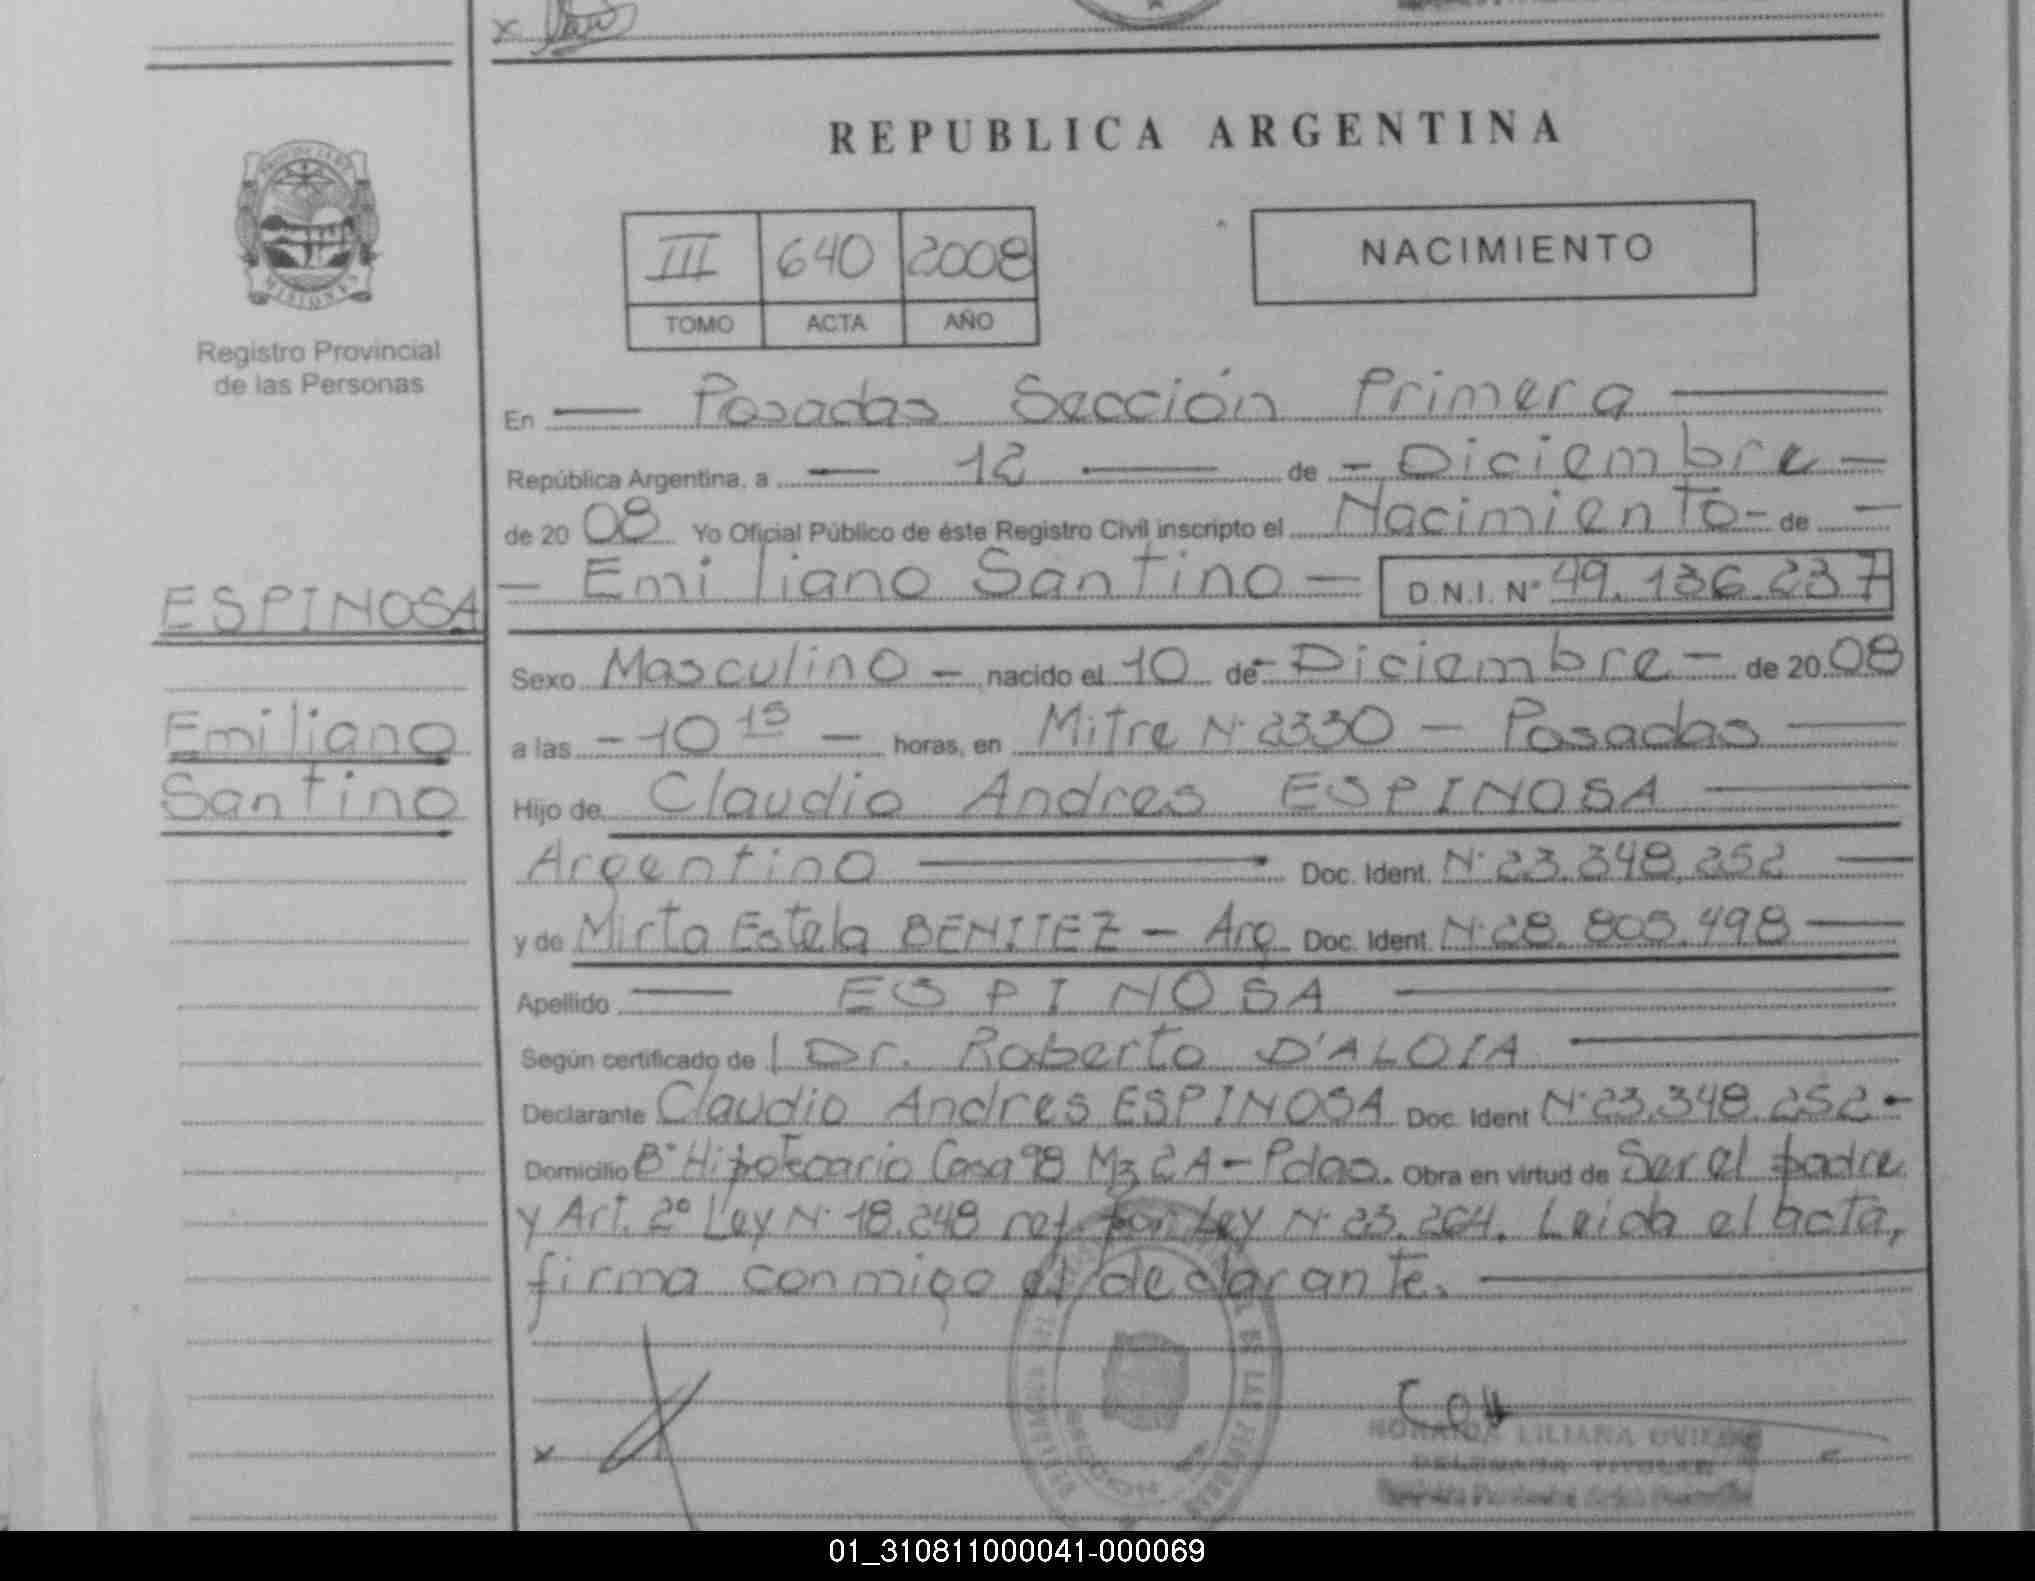 REPUBLICA ARGENTINA
PROVINCIA DE
MISIONES
Registro Provincial
de las Personas
III 640 2008
TOMO ACTA AÑO
NACIMIENTO
En — Posadas Sección Primera —
República Argentina, a — 12 — de - Diciembre -
de 2008 Yo Oficial Público de éste Registro Civil inscripto el Nacimiento - de —
- Emiliano Santino - D.N.I. Nº 49.136.237
ESPINOSA
Emiliano
Santino
Sexo Masculino - nacido el 10 de - Diciembre - de 2008
a las - 10 15 - horas, en Mitre Nº 2330 - Posadas —
Hijo de Claudio Andres ESPINOSA —
Argentino — Doc. Ident. Nº 23.348.252 —
y de Mirta Estela BENITEZ - Arg. Doc. Ident. Nº 28.805.498 —
Apellido — ESPINOSA —
Según certificado de Dr. Roberto D'ALOIA —
Declarante Claudio Andres ESPINOSA Doc. Ident Nº 23.348.252 -
Domicilio Bº Hipotecario Casa 98 Mz 2A - Pdas. Obra en virtud de Ser el padre
y Art. 2º Ley Nº 18.248 ref. por Ley Nº 23.264. Leida el acta,
firma conmigo el declarante. —
x
LILIANA
DELEGADA TITULAR
01_310811000041-000069